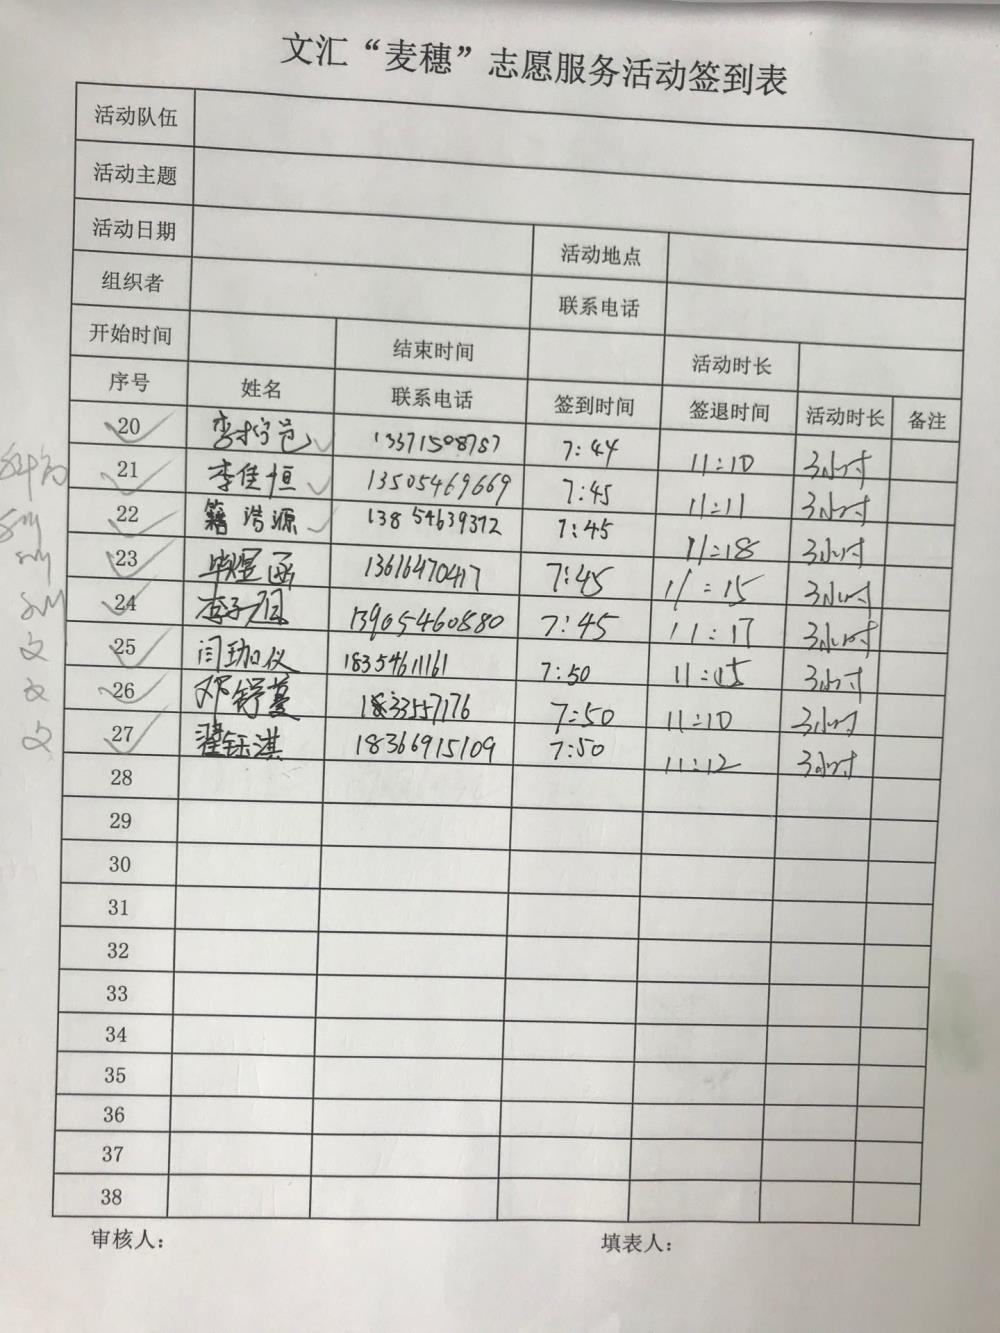 文汇“麦穗”志愿服务活动签到表
活动队伍
活动主题
活动日期 活动地点
组织者 联系电话
开始时间 结束时间 活动时长
序号 姓名 联系电话 签到时间 签退时间 活动时长 备注
20 13371508787 7:44 11:10 3小时
21 李佳恒 13505469669 7:45 11:11 3小时
22 籍浩源 13854639372 7:45 11:18 3小时
23 毕煜函 13616470417 7:45 11:15 3小时
24 李子 13965460880 7:45 11:17 3小时
25 闫珈仪 18354611161 7:50 11:15 3小时
26 邓舒蔓 7:50 11:10 3小时
27 翟钰淇 18366915109 7:50 11:12 3小时
28
29
30
31
32
33
34
35
36
37
38
文
文
文
审核人： 填表人：